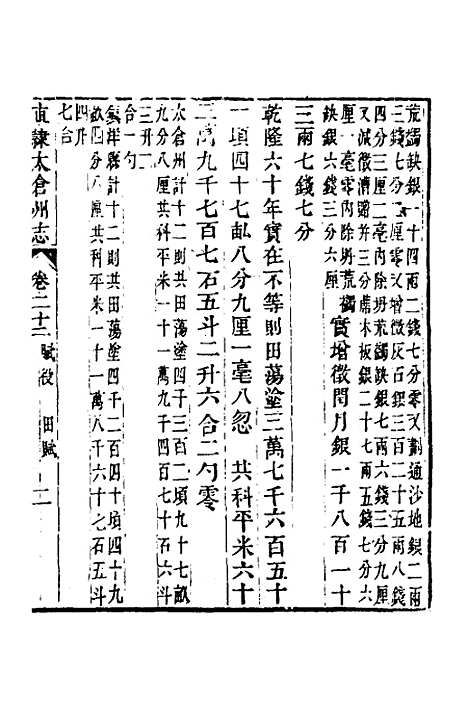 荒蠲缺銀一十四兩二錢七分零又劃通沙地銀二兩
三錢七分二厘零又增徵反石銀三百二十五兩八錢
四分三厘二毫內除坍荒蠲缺銀七兩六錢三分九厘
又減徵濟路并三分蓆木板銀二十七兩五錢七分六
厘一毫零內除坍荒蠲
缺銀六錢三分六厘
實增徵閏月銀一千八百一十
三兩七錢七分
乾隆六十年實在不等則田蕩塗三萬七千六百五十
一頃四十七畝八分九厘一毫八忽 共科平米六十
二萬九千七百七石五斗二升六合二勺零
太倉州計十二則共田蕩塗四千三百二頃九十七畝
九分八厘共科平米一十一萬九千四百七十石六斗
三升二
合一勺
鎮洋縣計十二則共田蕩塗四千二百四十頃四十九
畝四分八厘共科平米一十一萬八千六十七石五斗
四升
七合
直隸太倉州志 卷二十二 賦役 田賦 二